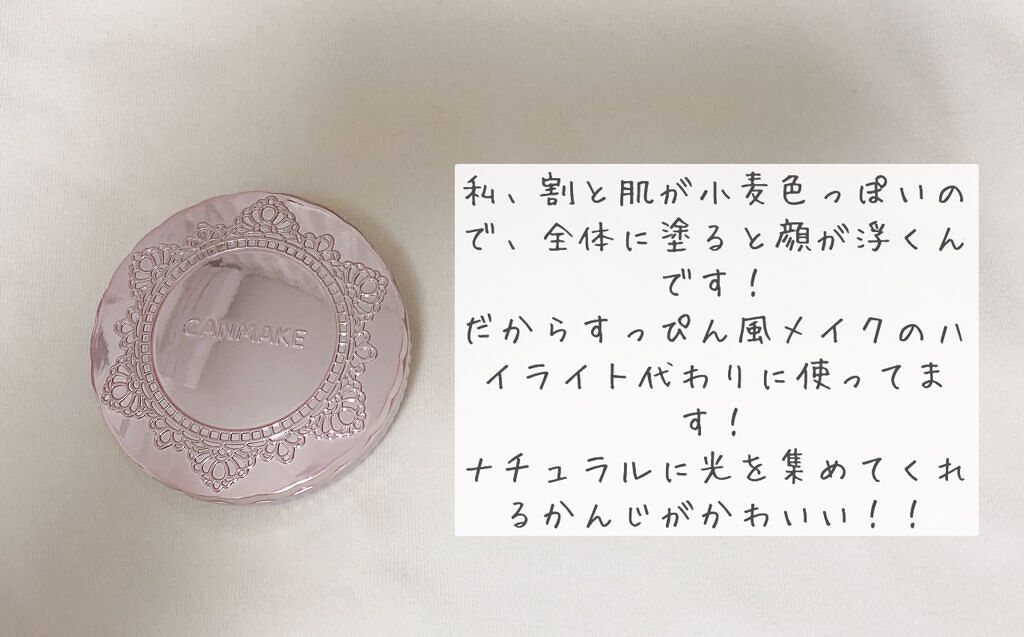 CANMAKE
私、割と肌が小麦色っぽいの
で、全体に塗ると顔が浮くん
です！
だからすっぴん風メイクのハ
イライト代わりに使ってま
す！
ナチュラルに光を集めてくれ
るかんじがかわいい！！